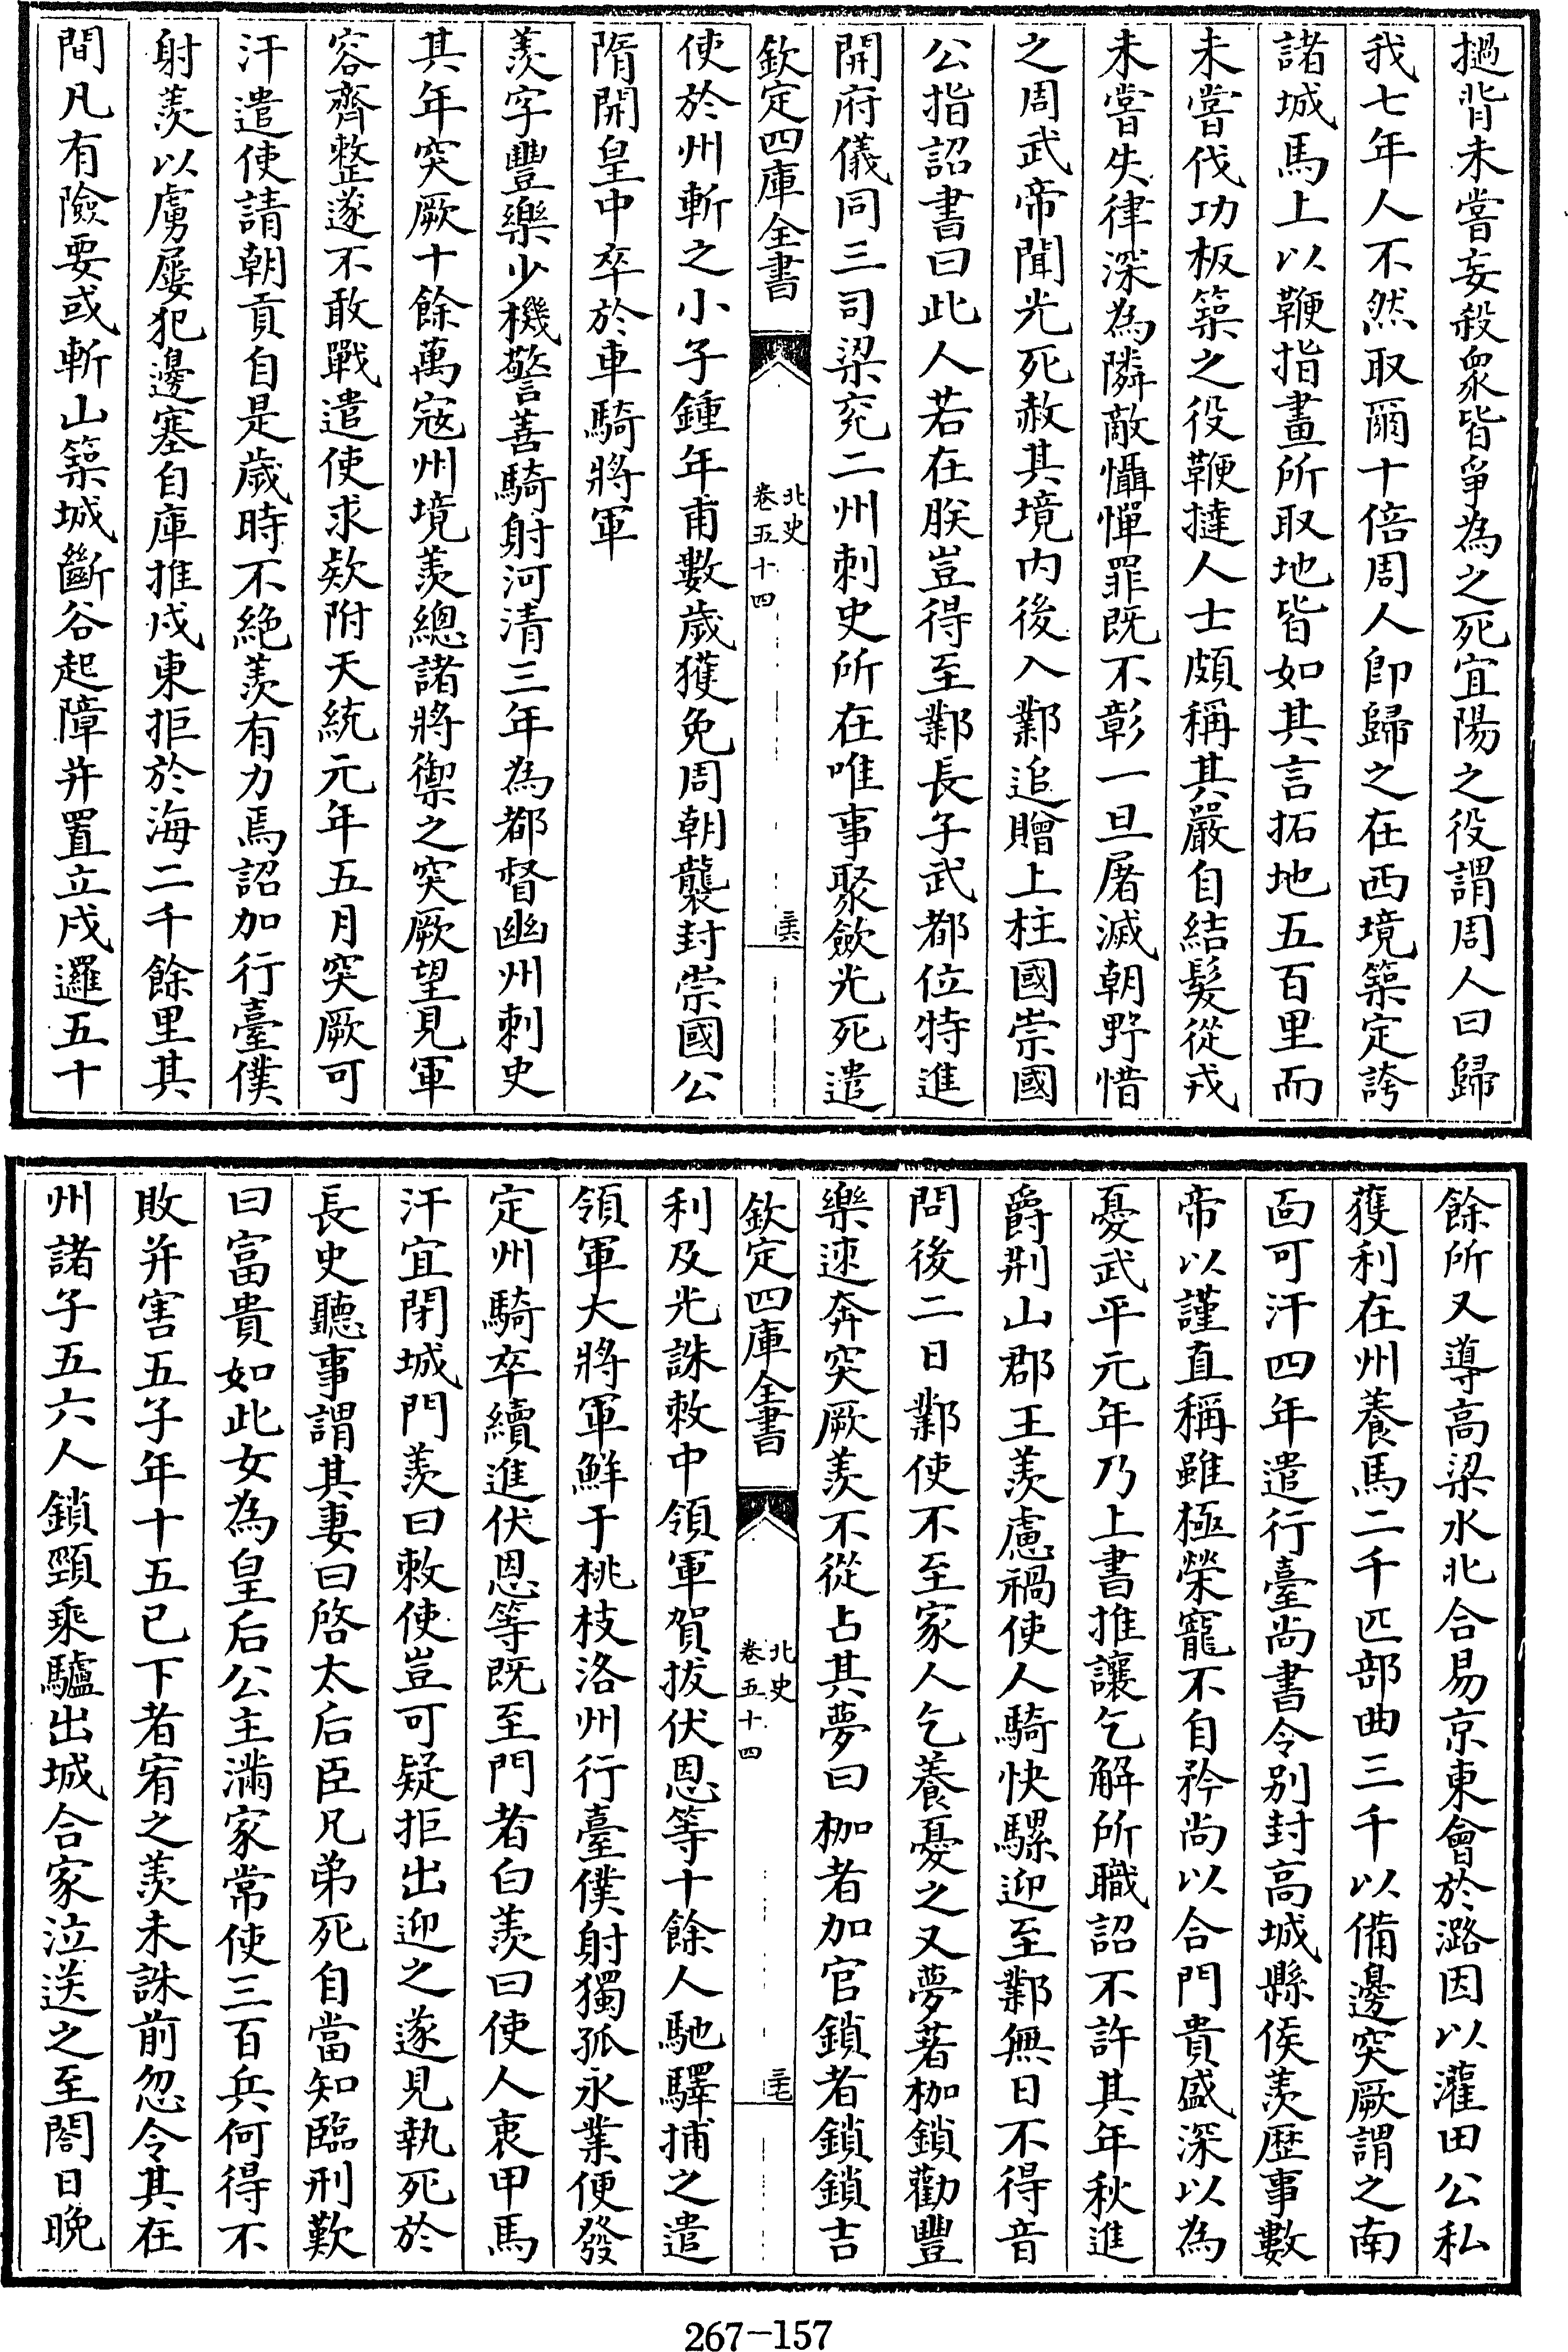 撾背未嘗妄殺衆皆爭為之死宜陽之役謂周人曰歸
我七年人不然取爾十倍周人即歸之在西境築定誇
諸城馬上以鞭指畫所取地皆如其言拓地五百里而
未嘗伐功板築之役鞭撻人士頗稱其嚴自結髮從戎
未嘗失律深為隣敵懾憚罪既不彰一旦屠滅朝野惜
之周武帝聞光死赦其境内後入鄴追贈上柱國崇國
公指詔書曰此人若在朕豈得至鄴長子武都位特進
開府儀同三司梁兖二州刺史所在唯事聚歛光死遣
欽定四庫全書
北史
卷五十四
三六
使於州斬之小子鍾年甫數歲獲免周朝襲封崇國公
隋開皇中卒於車騎將軍
羨字豐樂少機警善騎射河清三年為都督幽州刺史
其年突厥十餘萬寇州境羨總諸將禦之突厥望見軍
容齊整遂不敢戰遣使求欵附天統元年五月突厥可
汗遣使請朝貢自是歲時不絶羨有力焉詔加行臺僕
射羨以虜屢犯邊塞自庫推戍東拒於海二千餘里其
間凡有險要或斬山築城斷谷起障并置立戍邏五十
餘所又導高梁水北合易京東會於潞因以灌田公私
獲利在州養馬二千匹部曲三千以備邊突厥謂之南
靣可汗四年遣行臺尚書令别封高城縣侯羨歴事數
帝以謹直稱雖極榮寵不自矜尚以合門貴盛深以為
憂武平元年乃上書推讓乞解所職詔不許其年秋進
爵荆山郡王羨慮禍使人騎快騾迎至鄴無日不得音
問後二日鄴使不至家人乞養憂之又夢著枷鎖勸豐
樂速奔突厥羨不從占其夢曰枷者加官鎖者鎖鎖吉
欽定四庫全書
北史
卷五十四
三七
利及光誅敕中領軍賀拔伏恩等十餘人馳驛捕之遣
領軍大將軍鮮于桃枝洛州行臺僕射獨孤永業便發
定州騎卒續進伏恩等既至門者白羨曰使人衷甲馬
汗宜閉城門羨曰敕使豈可疑拒出迎之遂見執死於
長史聽事謂其妻曰啓太后臣兄弟死自當知臨刑歎
曰富貴如此女為皇后公主滿家常使三百兵何得不
敗并害五子年十五已下者宥之羨未誅前忽令其在
州諸子五六人鎖頸乘驢出城合家泣送之至閤日晩
267-157